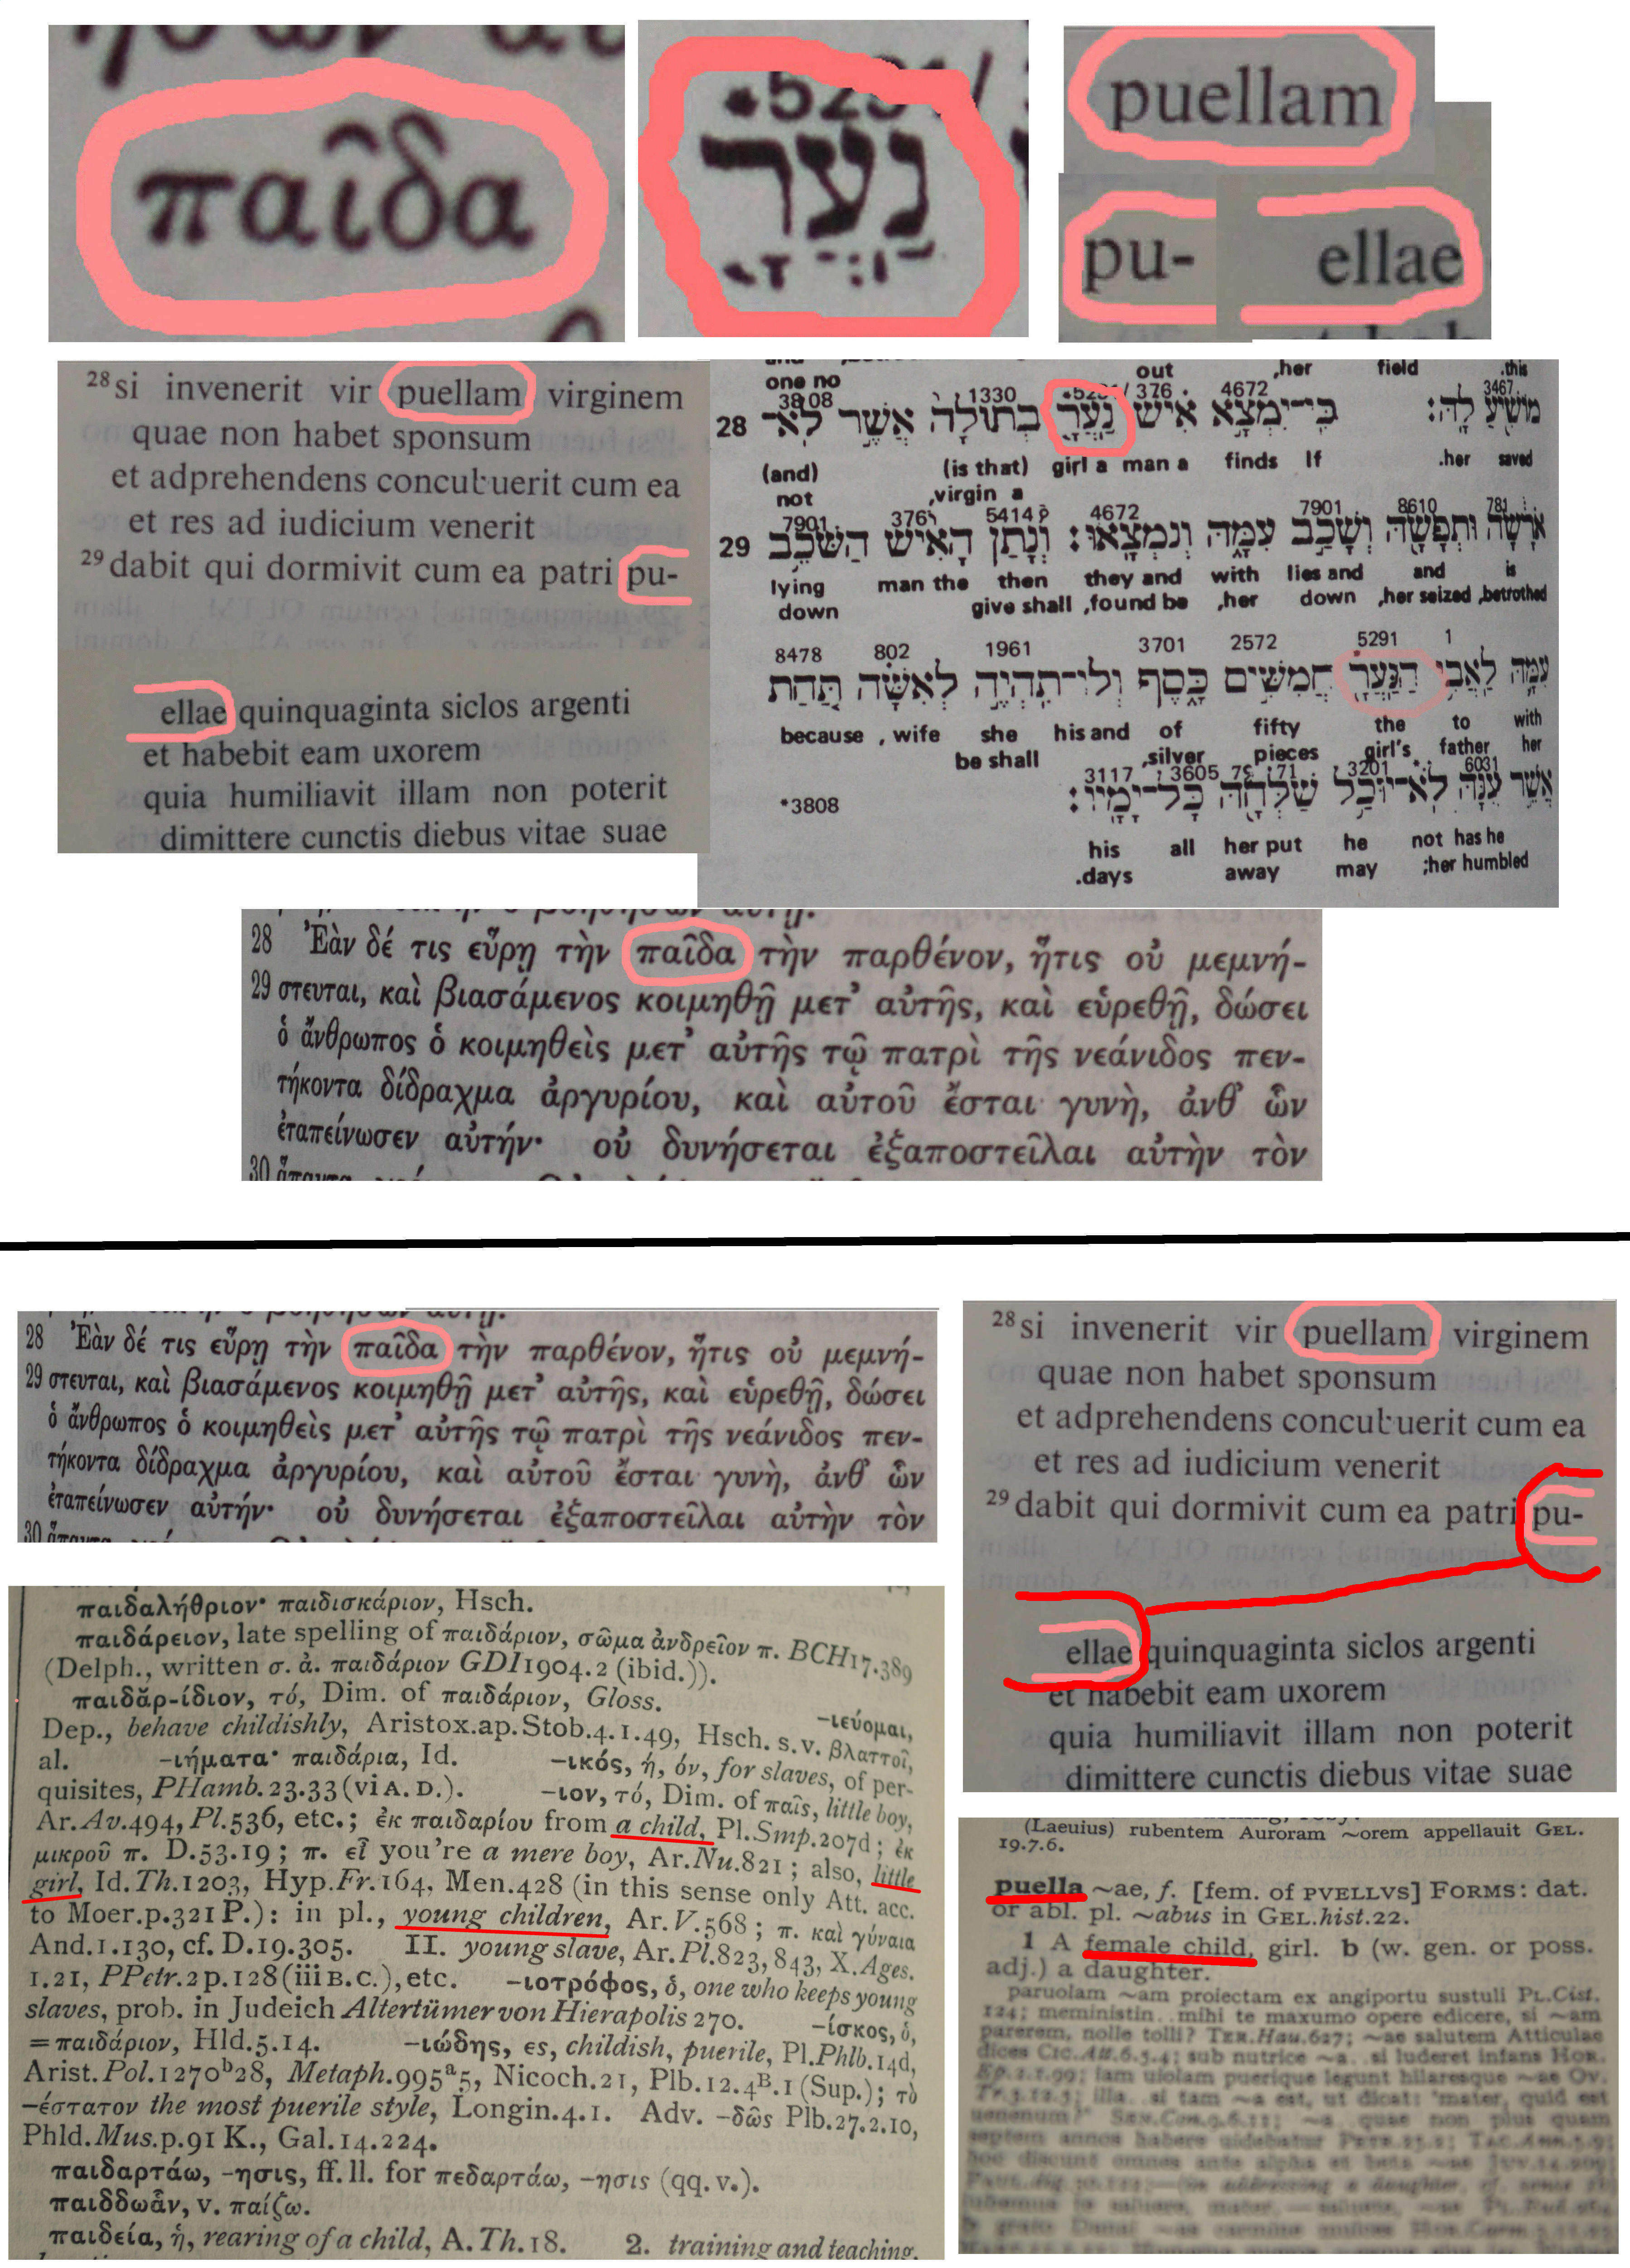 παῖδα
*5291/
נַעֲרָ
puellam
pu-
ellae
28 si invenerit vir puellam virginem
quae non habet sponsum
et adprehendens concubuerit cum ea
et res ad iudicium venerit
29 dabit qui dormivit cum ea patri pu-
ellae quinquaginta siclos argenti
et habebit eam uxorem
quia humiliavit illam non poterit
dimittere cunctis diebus vitae suae
one no out ,her field .this
3808 1330 376 4672 3467
28 כִּי־יִמְצָא אִישׁ נַעֲרָ בְתוּלָה אֲשֶׁר לֹא־
(and) (is that) girl a man a finds If .her saved
not ,virgin a
7901 376 5414 4672 7901 8610 781
29 אֹרָשָׂה וּתְפָשָׂהּ וְשָׁכַב עִמָּהּ וְנִמְצָאוּ׃ וְנָתַן הָאִישׁ הַשֹּׁכֵב
lying man the then they and with lies and and is
down give shall ,found be ,her down ,her seized ,betrothed
8478 802 1961 3701 2572 5291 1
עִמָּהּ לַאֲבִי הַנַּעֲרָ חֲמִשִּׁים כָּסֶף וְלוֹ־תִהְיֶה לְאִשָּׁה תַּחַת
because , wife she his and of fifty the to with
be shall ,silver pieces girl's father her
3117 3605 71 3201 6031
אֲשֶׁר עִנָּהּ לֹא־יוּכַל שַׁלְּחָהּ כָּל־יָמָיו׃
*3808
his all her put he not has he
.days away may ;her humbled
28 Ἐὰν δέ τις εὕρῃ τὴν παῖδα τὴν παρθένον, ἥτις οὐ μεμνή-
29 στευται, καὶ βιασάμενος κοιμηθῇ μετ’ αὐτῆς, καὶ εὑρεθῇ, δώσει
ὁ ἄνθρωπος ὁ κοιμηθεὶς μετ’ αὐτῆς τῷ πατρὶ τῆς νεάνιδος πεν-
τήκοντα δίδραχμα ἀργυρίου, καὶ αὐτοῦ ἔσται γυνὴ, ἀνθ’ ὧν
ἐταπείνωσεν αὐτήν· οὐ δυνήσεται ἐξαποστεῖλαι αὐτὴν τὸν
30
28 Ἐὰν δέ τις εὕρῃ τὴν παῖδα τὴν παρθένον, ἥτις οὐ μεμνή-
29 στευται, καὶ βιασάμενος κοιμηθῇ μετ’ αὐτῆς, καὶ εὑρεθῇ, δώσει
ὁ ἄνθρωπος ὁ κοιμηθεὶς μετ’ αὐτῆς τῷ πατρὶ τῆς νεάνιδος πεν-
τήκοντα δίδραχμα ἀργυρίου, καὶ αὐτοῦ ἔσται γυνὴ, ἀνθ’ ὧν
ἐταπείνωσεν αὐτήν· οὐ δυνήσεται ἐξαποστεῖλαι αὐτὴν τὸν
30
28 si invenerit vir puellam virginem
quae non habet sponsum
et adprehendens concubuerit cum ea
et res ad iudicium venerit
29 dabit qui dormivit cum ea patri pu-
ellae quinquaginta siclos argenti
et habebit eam uxorem
quia humiliavit illam non poterit
dimittere cunctis diebus vitae suae
παιδαλήθριον· παιδισκάριον, Hsch.
παιδάρειον, late spelling of παιδάριον, σῶμα ἀνδρεῖον π. BCH17.389
(Delph., written σ. ἀ. παιδάριον GDI1904.2 (ibid.)).
παιδᾰρ-ίδιον, τό, Dim. of παιδάριον, Gloss. –ιεύομαι,
Dep., behave childishly, Aristox.ap.Stob.4.1.49, Hsch. s.v. βλαττοῖ,
al. –ιήματα· παιδάρια, Id. –ικός, ή, όν, for slaves, of per-
quisites, PHamb.23.33 (vi A. D.). –ιον, τό, Dim. of παῖς, little boy,
Ar.Av.494, Pl.536, etc.; ἐκ παιδαρίου from a child, Pl.Smp.207d; ἐκ
μικροῦ π. D.53.19; π. εἶ you're a mere boy, Ar.Nu.821; also, little
girl, Id.Th.1203, Hyp.Fr.164, Men.428 (in this sense only Att. acc.
to Moer.p.321 P.): in pl., young children, Ar.V.568; π. καὶ γύναια
And.1.130, cf. D.19.305. II. young slave, Ar.Pl.823, 843, X.Ages.
1.21, PPetr.2 p.128 (iii B.C.), etc. –ιοτρόφος, ὁ, one who keeps young
slaves, prob. in Judeich Altertümer von Hierapolis 270. –ίσκος, ὁ,
=παιδάριον, Hld.5.14. –ιώδης, ες, childish, puerile, Pl.Phlb.14d,
Arist.Pol.1270b28, Metaph.995a5, Nicoch.21, Plb.12.4B.1 (Sup.); τὸ
–έστατον the most puerile style, Longin.4.1. Adv. –δῶς Plb.27.2.10,
Phld.Mus.p.91 K., Gal.14.224.
παιδαρτάω, –ησις, ff. ll. for πεδαρτάω, –ησις (qq. v.).
παιδδωἅν, v. παίζω.
παιδεία, ἡ, rearing of a child, A.Th.18. 2. training and teaching,
(Laeuius) rubentem Auroram ~orem appellauit GEL.
19.7.6.
puella ~ae, f. [fem. of PVELLVS] FORMS: dat.
or abl. pl. ~abus in GEL.hist.22.
1 A female child, girl. b (w. gen. or poss.
adj.) a daughter.
paruolam ~am proiectam ex angiportu sustuli PL.Cist.
124; meministin.. mihi te maxumo opere edicere, si ~am
parerem, nolle tolli? TER.Hau.627; ~ae salutem Atticulae
dices CIC.Att.6.5.4; sub nutrice ~a.. si luderet infans HOR.
Ep.2.1.99; iam uiolam puerique legunt hilaresque ~ae OV.
Tr.3.12.5; illa.. si tam ~a est, ut dicat: 'mater, quid est
uenenum?' SEN.Con.9.6.11; ~a quae non plus quam
septem annos habere uidebatur PETR.25.2;